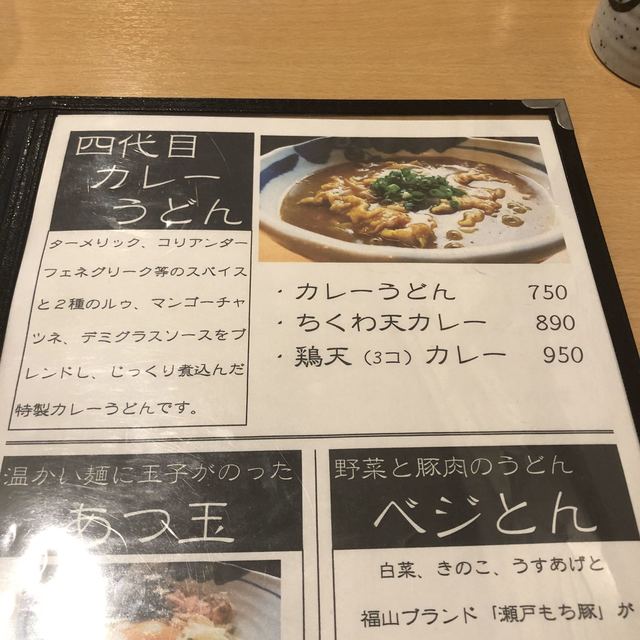 四代目
カレー
うどん
ターメリック、コリアンダー
フェネグリーク等のスパイス
と2種のルゥ、マンゴーチャ
ツネ、デミグラスソースをブ
レンドし、じっくり煮込んだ
特製カレーうどんです。
・カレーうどん 750
・ちくわ天カレー 890
・鶏天（3コ）カレー 950
温かい麺に玉子がのった
あつ玉
野菜と豚肉のうどん
ベジとん
白菜、きのこ、うすあげと
福山ブランド「瀬戸もち豚」が